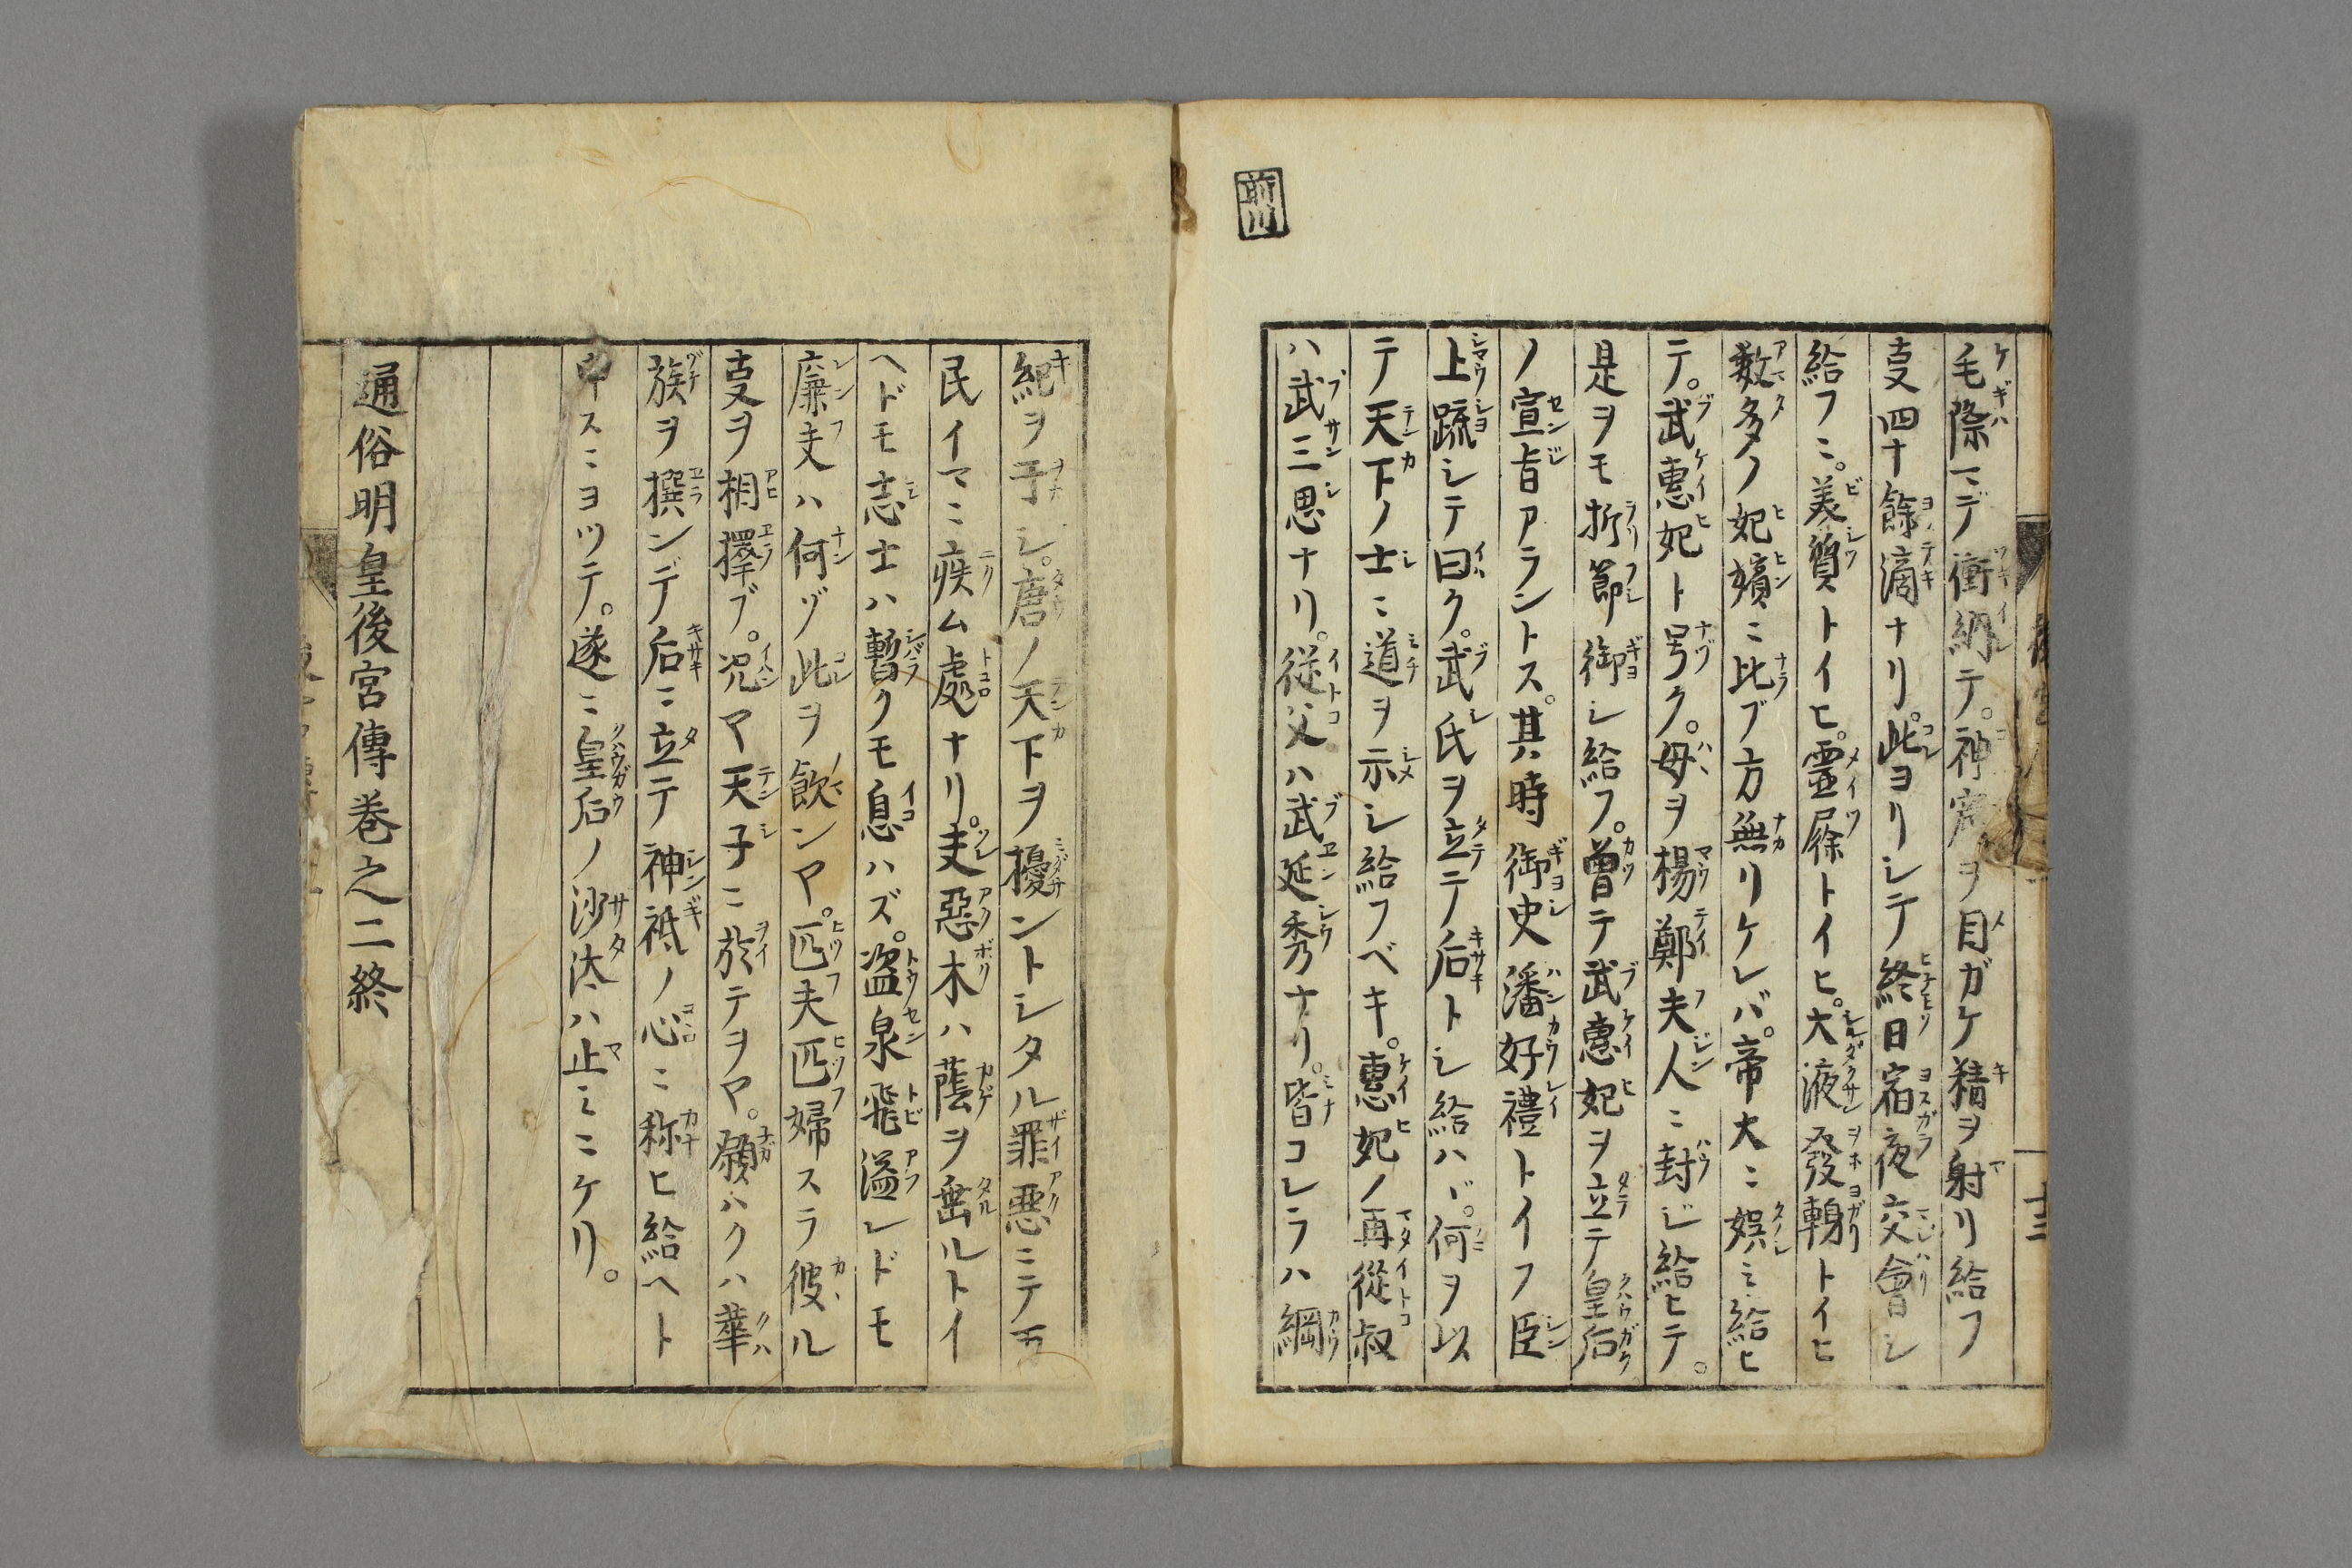 毛際マデ衝納テ。神宮ヲ目ガケ精ヲ射リ給フ
叓四十餘滴ナリ。此ヨリシテ終日宿夜交會シ
給フニ。美質トイヒ。霊屧トイヒ。大液發輈トイヒ
数多ノ妃嬪ニ比ブ方無リケレバ。帝大ニ娯ミ給ヒ
テ。武惠妃ト号ク。母ヲ楊鄭夫人ニ封ジ給ヒテ。
是ヲモ折節御シ給フ。曾テ武惠妃ヲ立テ皇后
ノ宣旨アラントス。其時御史潘好禮トイフ臣
上蹠シテ曰ク。武氏ヲ立テ后トシ給ハヾ。何ヲ以
テ天下ノ士ニ道ヲ示シ給フベキ。惠妃ノ再從叔
ハ武三思ナリ。従父ハ武延秀ナリ。皆コレラハ綱
紀ヲ干シ。唐ノ天下ヲ擾ントシタル罪悪ニテ万
民イマニ疾ム處ナリ。夫惡木ハ蔭ヲ垂ルトイ
ヘドモ志士ハ暫クモ息ハズ。盗泉飛溢レドモ
廉夫ハ何ゾ此ヲ飲ンヤ。匹夫匹婦スラ彼ル
叓ヲ相擇ブ。况マ天子ニ於テヲヤ。願ハクハ華
族ヲ撰ンデ后ニ立テ神祗ノ心ニ称ヒ給ヘト
申スニヨツテ。遂ニ皇后ノ沙汰ハ止ミニケリ。
通俗明皇後宮傳巻之二終
十三
前川